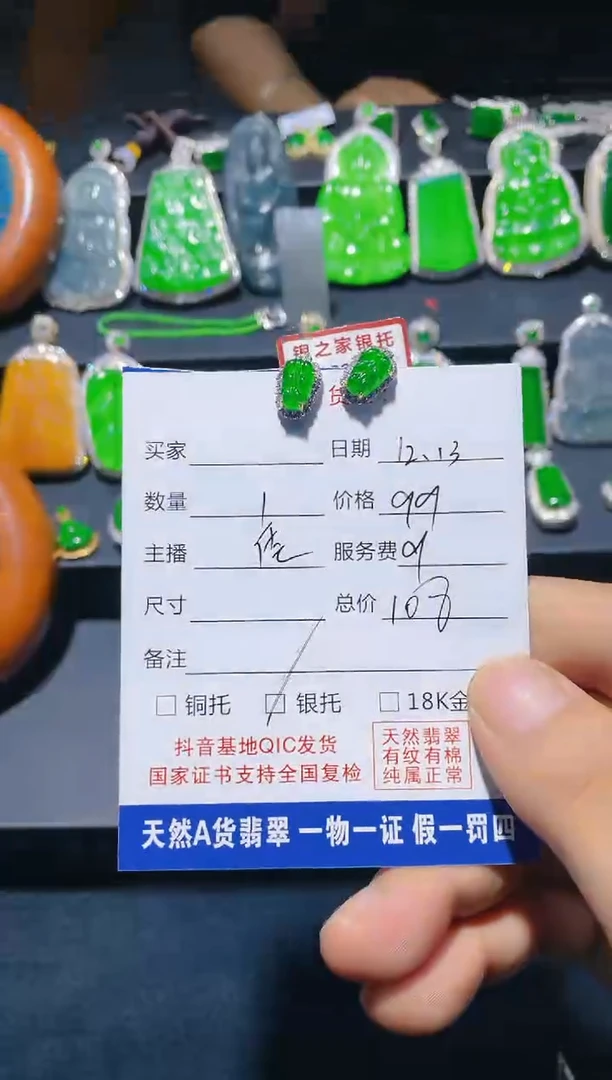 银之家银托
货
买家 日期 12.13
数量 1 价格 99
主播 服务费 9
尺寸 总价 108
备注
铜托 银托 18K金
抖音基地QIC发货
国家证书支持全国复检
天然翡翠
有纹有棉
纯属正常
天然A货翡翠 一物一证 假一罚四